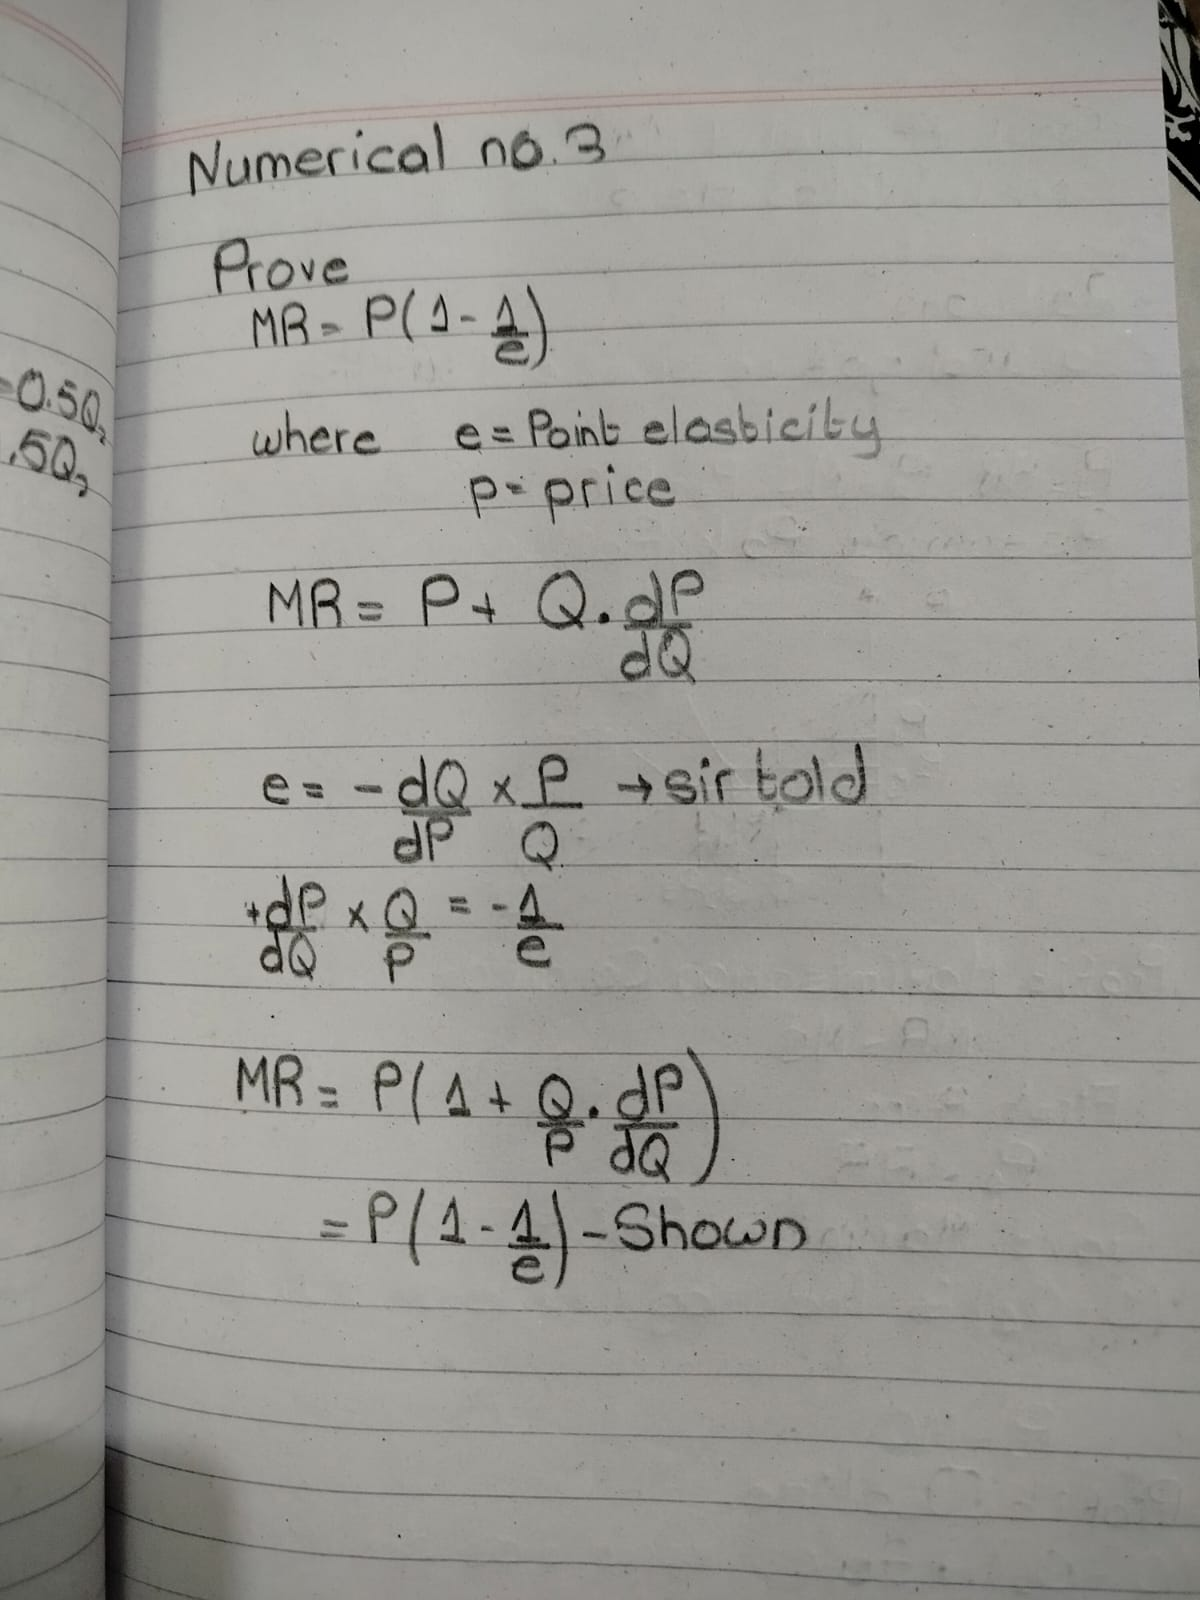 Numerical no. 3
Prove
MR = P(1 - 1/e)
where e = Point elasticity
P = price
MR = P + Q . dP/dQ
e = - dQ/dP x P/Q → sir told
+dP/dQ x Q/P = - 1/e
MR = P(1 + Q/P . dP/dQ)
= P(1 - 1/e) - Shown
-0.5Q,
.5Q,